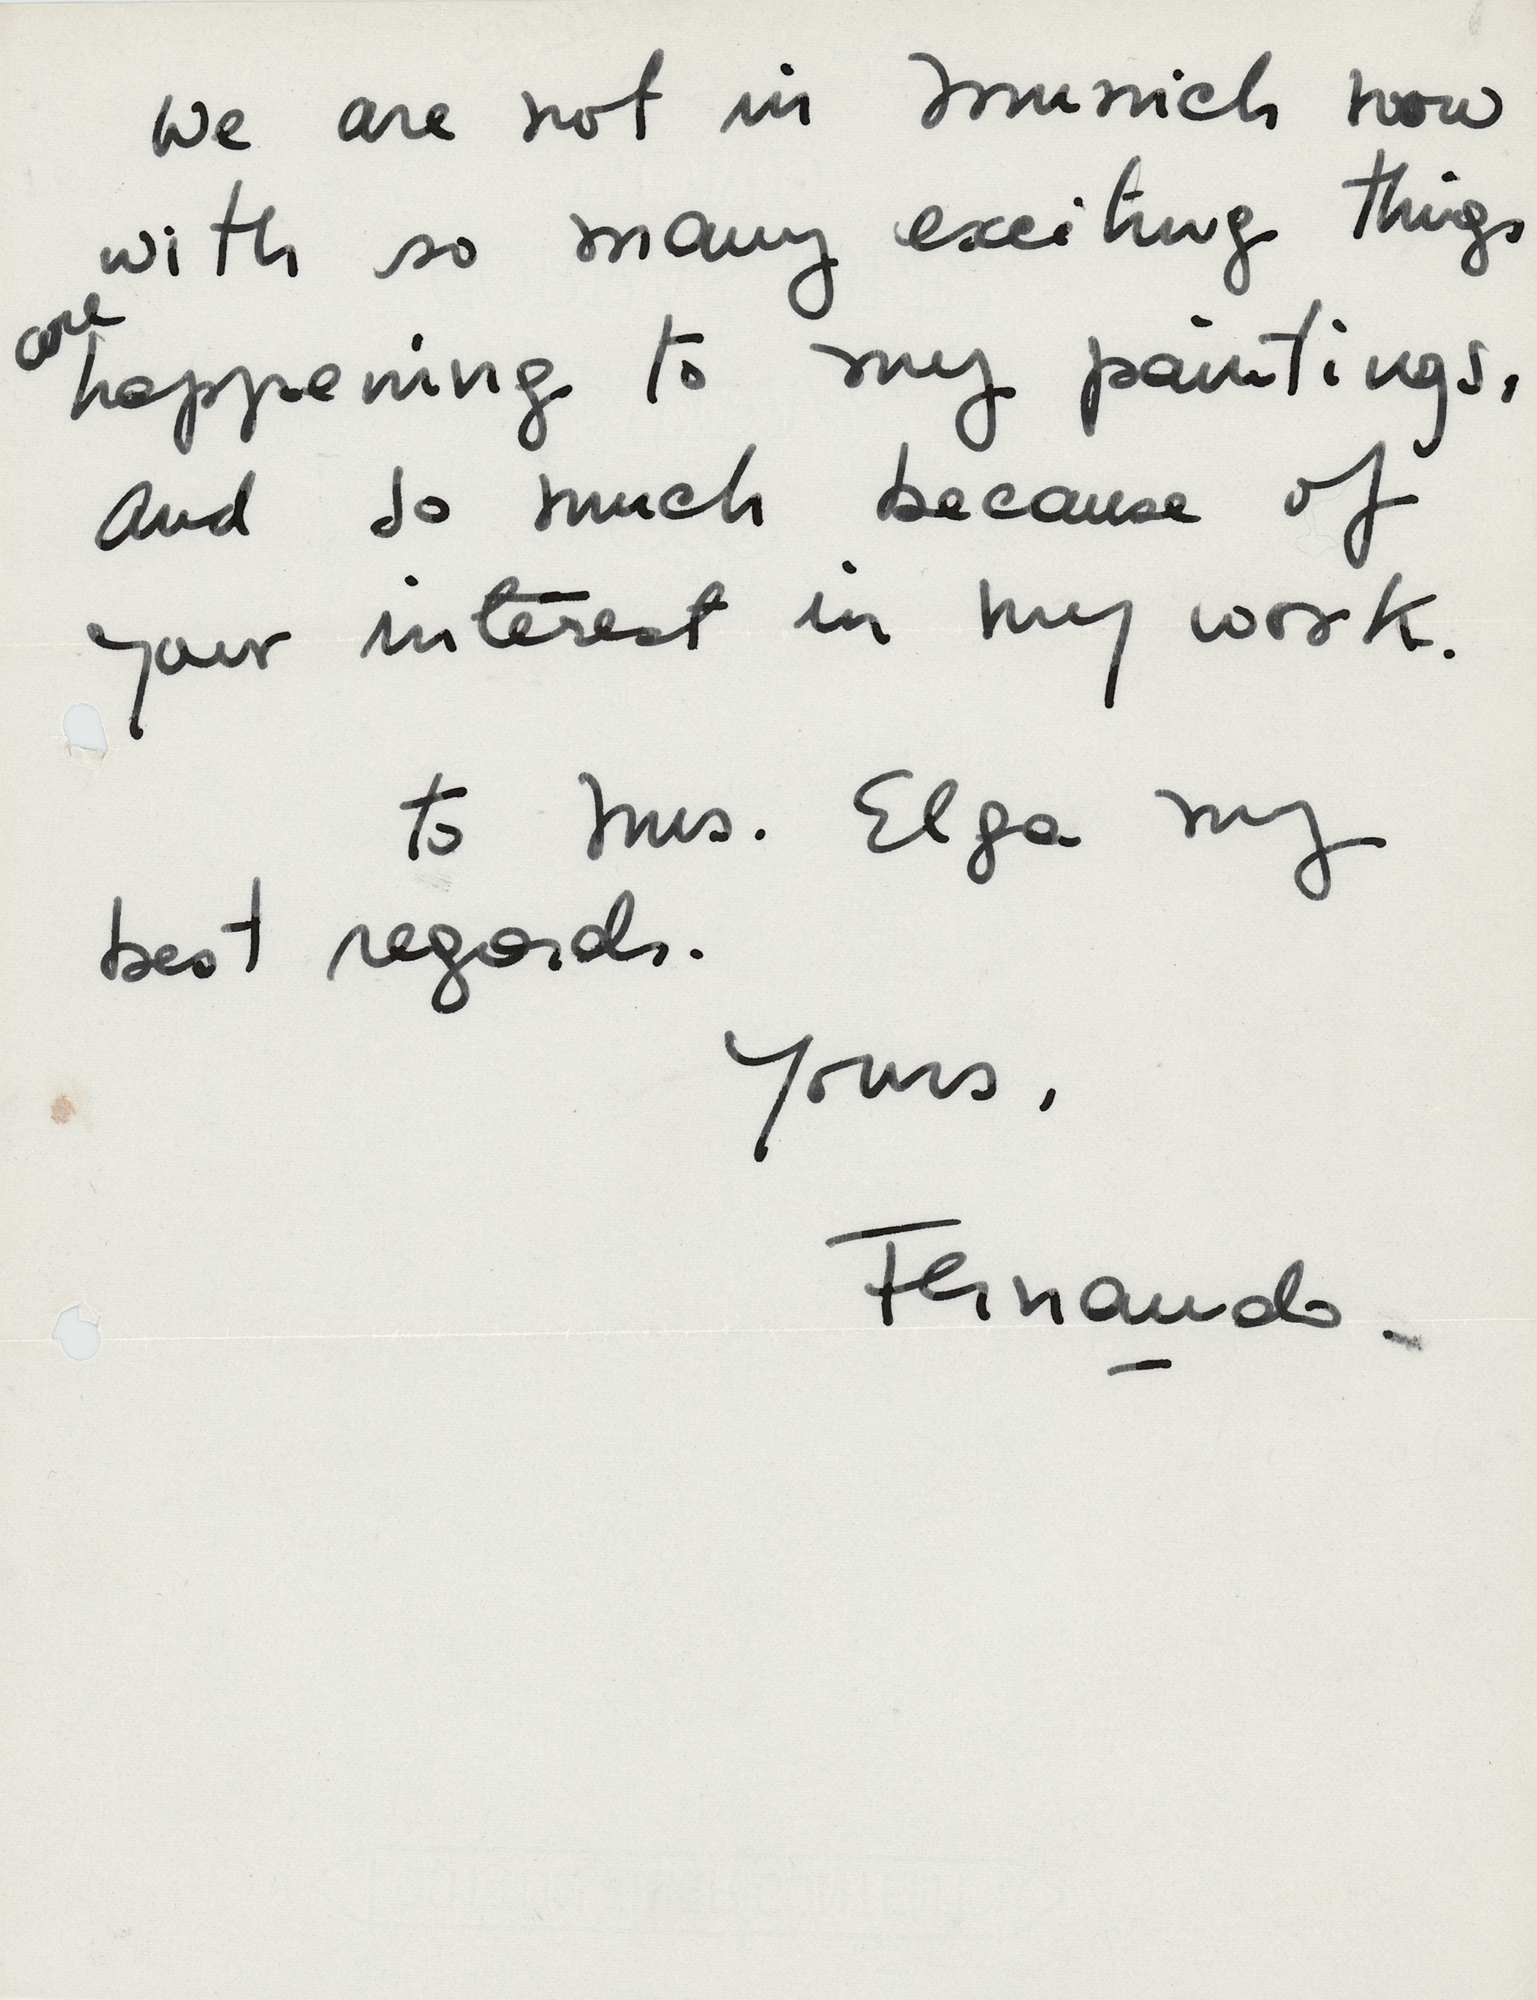 We are not in Munich now
with so many exciting things
are
happening to my paintings,
And so much because of
your interest in my work.
to Mrs. Elga my
best regards.
Yours,
Fernando.